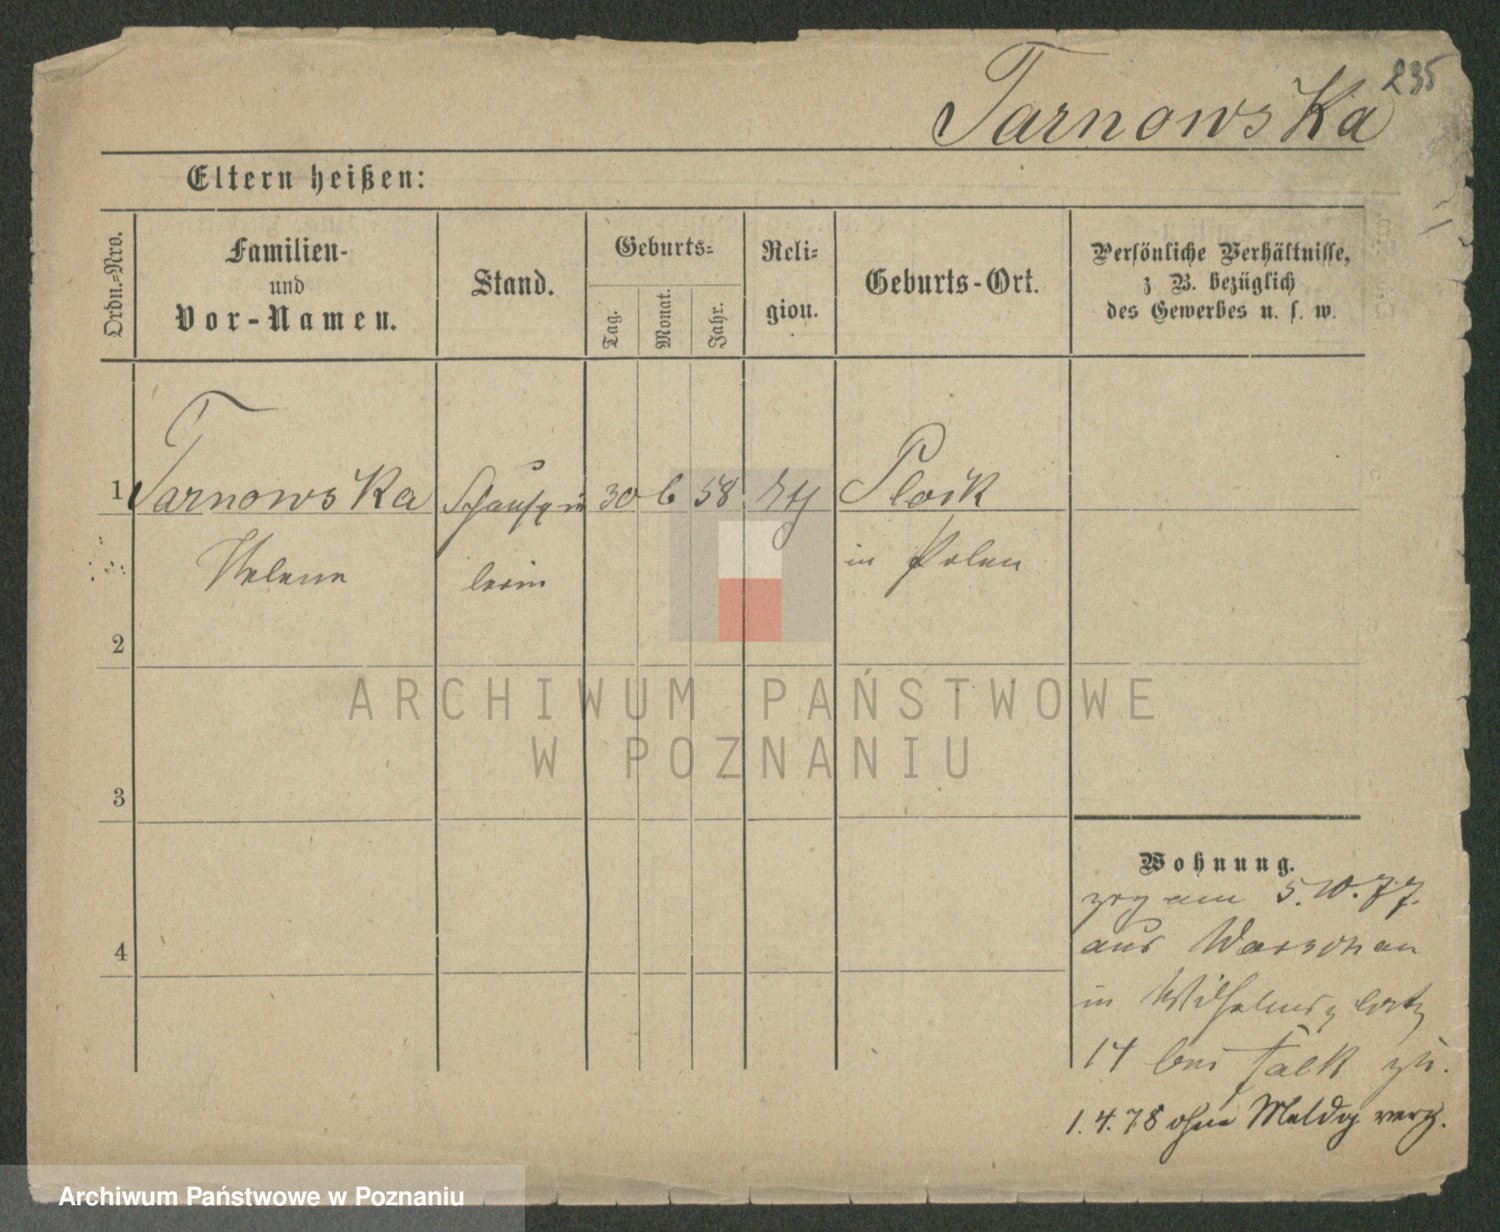 235
Tarnowska
Eltern heißen:
Ordn.-Nro.
Familien-
und
Vor-Namen.
Stand.
Geburts-
Tag.
Monat.
Jahr.
Reli-
gion.
Geburts-Ort.
Persönliche Verhältnisse,
z B. bezüglich
des Gewerbes u. s. w.
1 Tarnowska Schauspie 30 6 58 Plock
Helene lerin in Polen
2
3
4
Wohnung.
zog am 5. 10. 77.
aus Warschau
in Wilhelmsplatz
14 bei Falk zu.
1. 4. 78 ohne Meldg verz.
ARCHIWUM PAŃSTWOWE
W POZNANIU
Archiwum Państwowe w Poznaniu